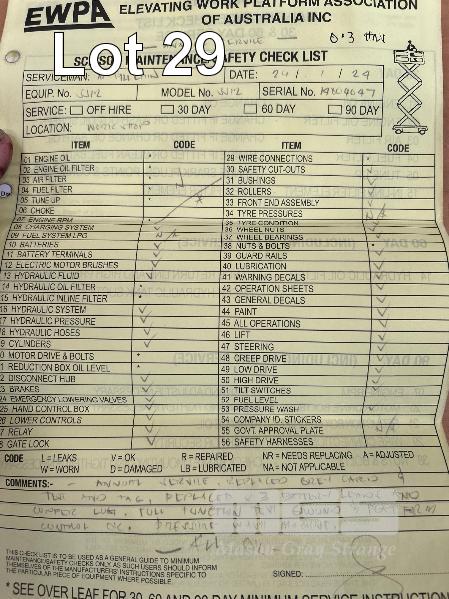 EWPA
ELEVATING WORK PLATFORM ASSOCIATION
OF AUSTRALIA INC
SERVICE
Lot 29
SAFETY CHECK LIST
SERVICEMAN:
DATE: 24 / 1 / 24
EQUIP. No. SJ12 MODEL No. SJ12 SERIAL No.
SERVICE: OFF HIRE 30 DAY 60 DAY 90 DAY
LOCATION:
ITEM CODE ITEM CODE
01 ENGINE OIL
02 ENGINE OIL FILTER
03 AIR FILTER
04 FUEL FILTER
05 TUNE UP
06 CHOKE
07 ENGINE RPM
08 CHARGING SYSTEM
09 FUEL SYSTEM LPG
10 BATTERIES
11 BATTERY TERMINALS
12 ELECTRIC MOTOR BRUSHES
13 HYDRAULIC FLUID
14 HYDRAULIC OIL FILTER
15 HYDRAULIC INLINE FILTER
16 HYDRAULIC SYSTEM
17 HYDRAULIC PRESSURE
18 HYDRAULIC HOSES
9 CYLINDERS
0 MOTOR DRIVE & BOLTS
1 REDUCTION BOX OIL LEVEL
2 DISCONNECT HUB
23 BRAKES
24 EMERGENCY LOWERING VALVES
25 HAND CONTROL BOX
26 LOWER CONTROLS
7 RELAY
8 GATE LOCK
29 WIRE CONNECTIONS
30 SAFETY CUT-OUTS
31 BUSHINGS
32 ROLLERS
33 FRONT END ASSEMBLY
34 TYRE PRESSURES N/A
35 TYRE CONDITION
36 WHEEL NUTS
37 WHEEL BEARINGS
38 NUTS & BOLTS
39 GUARD RAILS
40 LUBRICATION
41 WARNING DECALS
42 OPERATION SHEETS
43 GENERAL DECALS
44 PAINT
45 ALL OPERATIONS
46 LIFT
47 STEERING
48 CREEP DRIVE
49 LOW DRIVE
50 HIGH DRIVE
51 TILT SWITCHES
52 FUEL LEVEL
53 PRESSURE WASH
54 COMPANY ID. STICKERS
55 GOVT. APPROVAL PLATE N/A
56 SAFETY HARNESSES
CODE L=LEAKS V=OK R=REPAIRED NR=NEEDS REPLACING A=ADJUSTED
W=WORN D=DAMAGED LB=LUBRICATED NA=NOT APPLICABLE
COMMENTS:- - ANNUAL SERVICE. REPLACED
AND TAG, REPLACED
LUG. FULL FUNCTION TEST GROUND &
CONTROL OK. PRESSURE WASH MACHINE.
Master Gray Strange
THIS CHECK LIST IS TO BE USED AS A GENERAL GUIDE TO MINIMUM
MAINTENANCE/SAFETY CHECKS ONLY AS SUCH USERS SHOULD INFORM
THEMSELVES OF THE MANUFACTURERS' INSTRUCTIONS SPECIFIC TO
THE PARTICULAR PIECE OF EQUIPMENT WHERE POSSIBLE.
SIGNED:
* SEE OVER LEAF FOR 30, 60 AND 90 DAY MINIMUM SERVICE INSTRUCTION